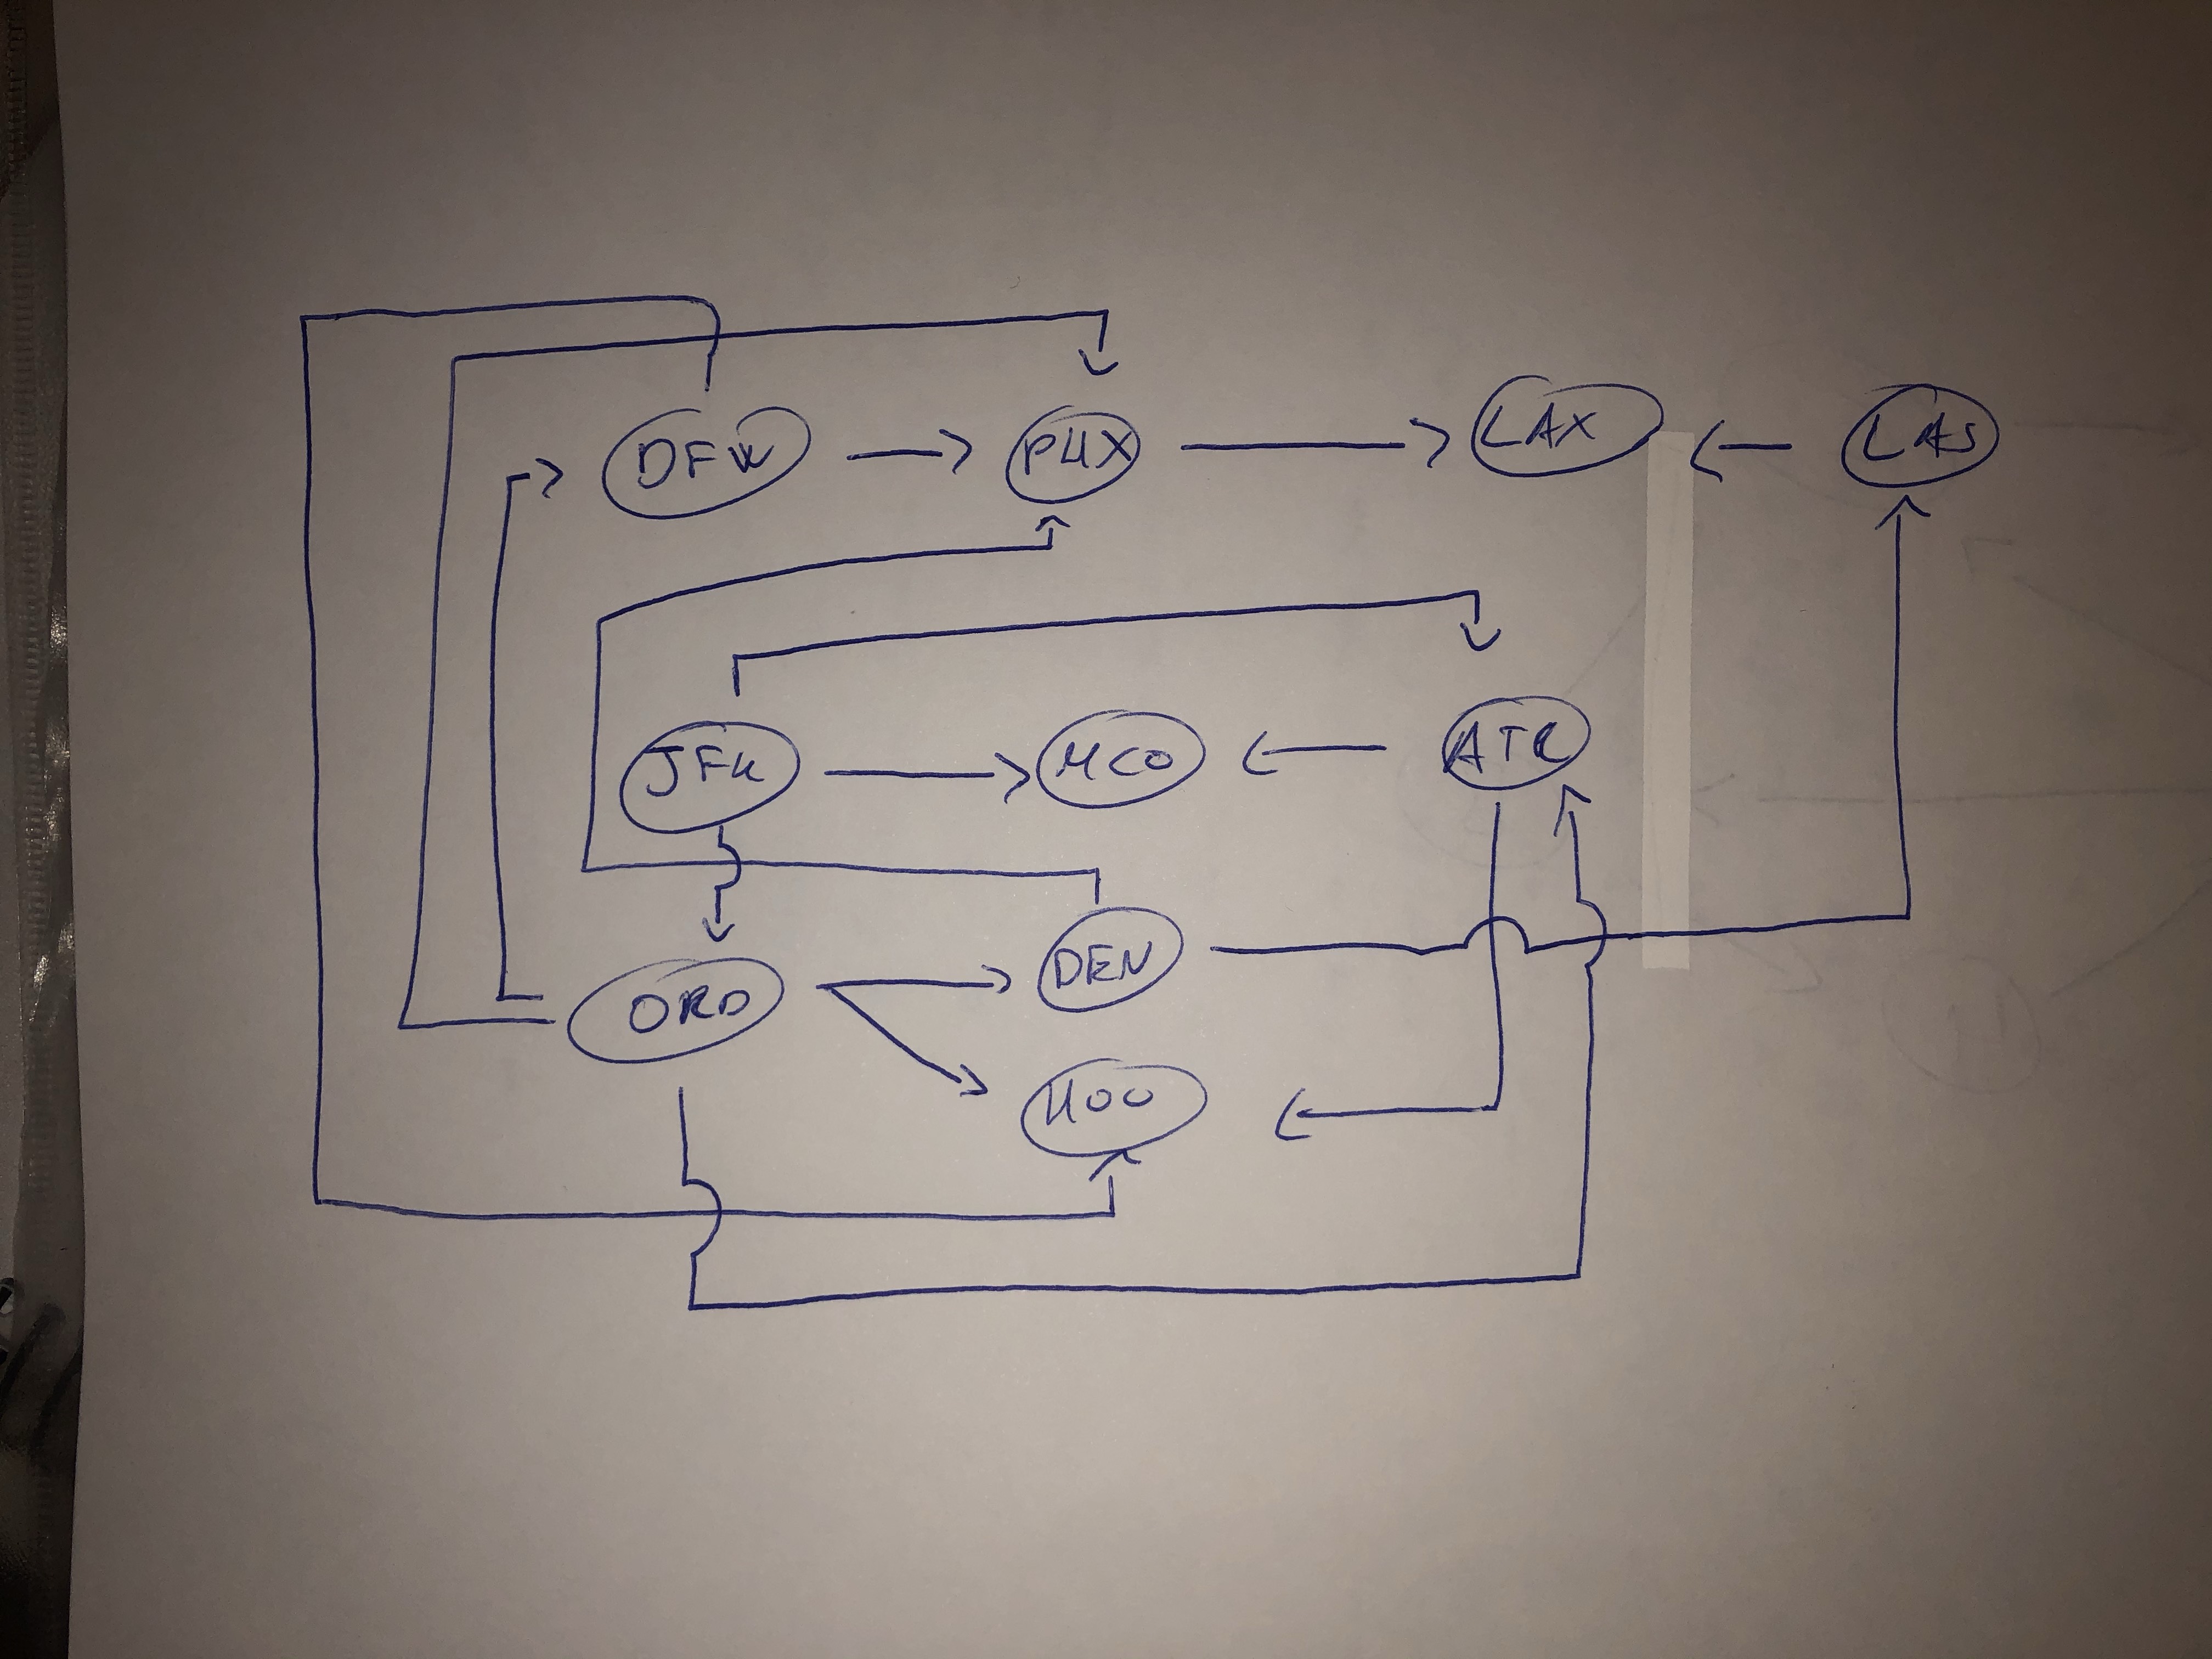 DFW PHX LAX LAS
JFK MCO ATL
DEN
ORD
HOU